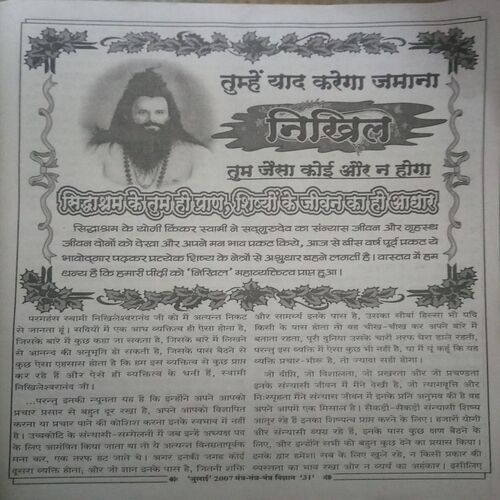 तुम्हें याद करेगा जमाना
निखिल
तुम जैसा कोई और न होगा
सिद्धाश्रम के तुम ही प्राण, शिष्यों के जीवन का ही आधार
सिद्धाश्रम के योगी किंकर स्वामी ने सद्गुरुदेव का संन्यास जीवन और गृहस्थ
जीवन दोनों को देखा और अपने मन भाव प्रकट किये, आज से बीस वर्ष पूर्व प्रकट ये
भावोद्गार पढ़कर प्रत्येक शिष्य के नेत्रों से अश्रुधार बहने लगती है। वास्तव में हम
धन्य है कि हमारी पीढ़ी को 'निखिल' महाव्यक्तित्व प्राप्त हुआ।
परमहंस स्वामी निखिलेश्वरानंद जी को मैं अत्यन्त निकट
से जानता हूं। सदियों में एक आध व्यक्तित्व ही ऐसा होता है,
जिसके बारे में कुछ कहा जा सकता है, जिसके बारे में लिखने
से आनन्द की अनुभूति हो सकती है, जिसके पास बैठने से
कुछ ऐसा एहसास होता है कि हम इस व्यक्तित्व से कुछ प्राप्त
कर रहे हैं और ऐसे ही व्यक्तित्व के धनी हैं, स्वामी
निखिलेश्वरानंद जी।
...परन्तु इनकी न्यूनता यह है कि इन्होंने अपने आपको
प्रचार प्रसार से बहुत दूर रखा है, अपने आपको विज्ञापित
करना या प्रचार पाने की कोशिश करना इनके स्वभाव में नहीं
है। उच्चकोटि के संन्यासी-सम्मेलनों में जब इन्हें अध्यक्ष पद
के लिए आमंत्रित किया जाता था तो ये अत्यन्त विनम्रतापूर्वक
मना कर, एक तरफ हट जाते थे। अगर इनकी जगह कोई
दूसरा व्यक्ति होता; और जो ज्ञान इनके पास है, जितनी शक्ति
और सामर्थ्य इनके पास है, उसका सौवां हिस्सा भी यदि
किसी के पास होता तो वह चीख-चीख कर अपने बारे में
बताता रहता, पूरी दुनिया उसके चारों तरफ घेरा डाले रहती,
परन्तु इस व्यक्ति में ऐसा कुछ भी नहीं है, या मैं यूं कहूं कि यह
व्यक्ति प्रचार-भीरू है, तो ज्यादा सही होगा।
जो दीप्ति, जो विशालता, जो प्रखरता और जो प्रचण्डता
इनके संन्यासी जीवन में मैंने देखी है, जो त्यागवृत्ति और
निःस्पृहता मैंने संन्यास जीवन में इनके प्रति अनुभव की है वह
अपने आपमें एक मिसाल है। सैकड़ों-सैकड़ों संन्यासी शिष्य
आतुर रहे हैं इनका शिष्यत्व प्राप्त करने के लिए। हजारों योगी
और संन्यासी व्यग्र रहे हैं, इनके पास कुछ क्षण बैठने के
लिए, और इन्होंने सभी को बहुत कुछ देने का प्रयास किया।
इनके द्वार हमेशा सब के लिए खुले रहे, न किसी प्रकार की
व्यस्तता का भाव रखा और न व्यर्थ का अहंकार। इसीलिए
'जुलाई' 2007 मंत्र-तंत्र-यंत्र विज्ञान '31'